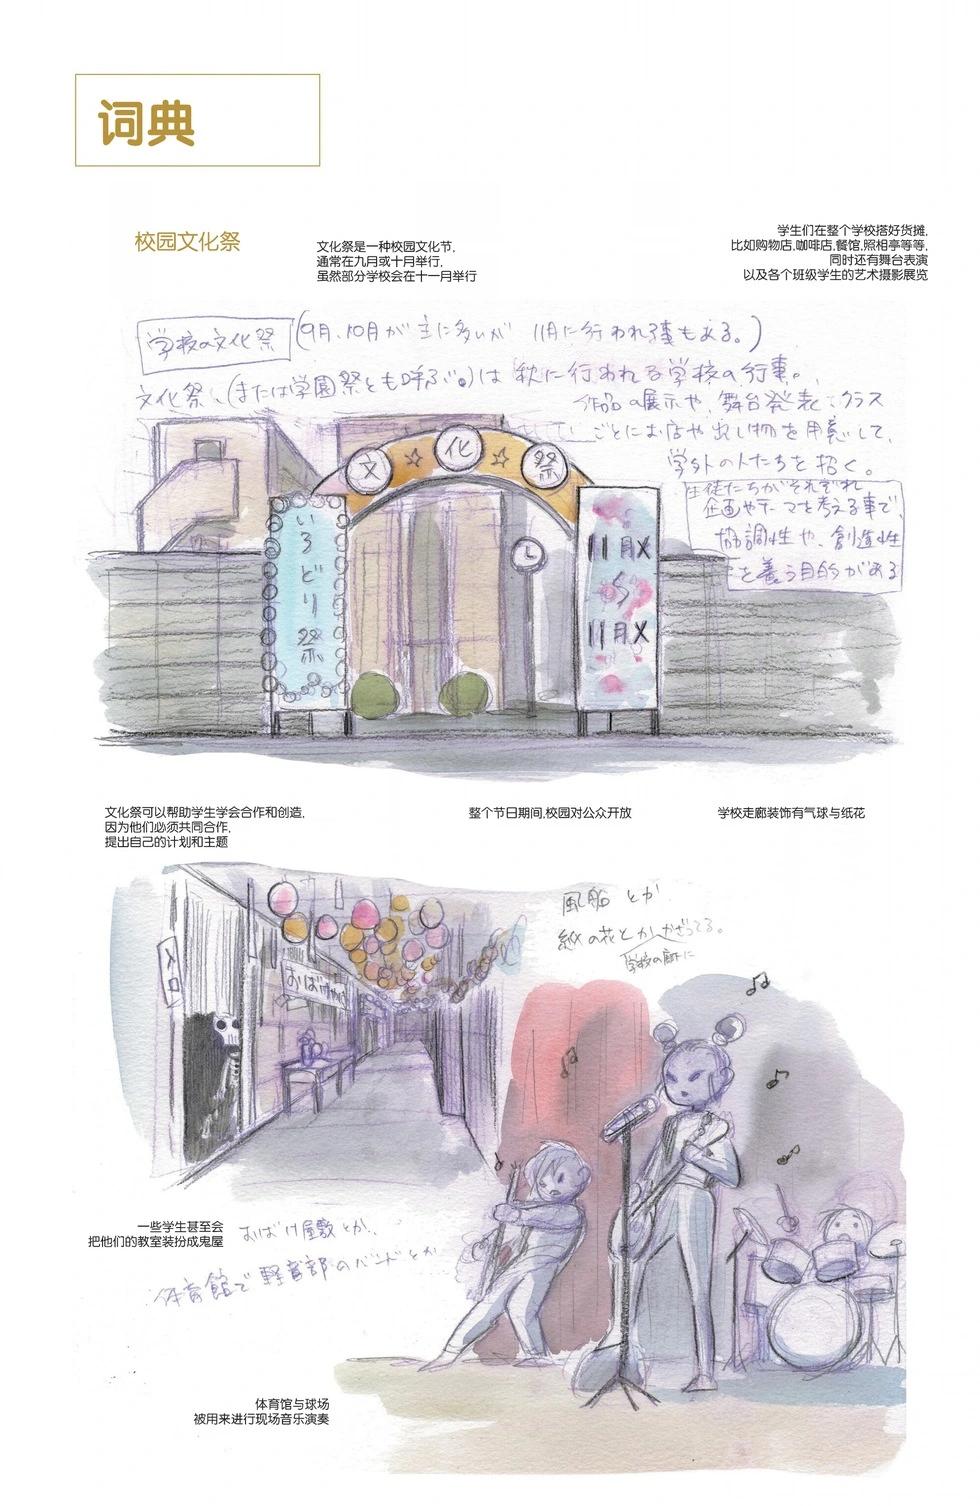 词典
校园文化祭
文化祭是一种校园文化节,
通常在九月或十月举行,
虽然部分学校会在十一月举行
学生们在整个学校搭好货摊,
比如购物店,咖啡店,餐馆,照相亭等等,
同时还有舞台表演
以及各个班级学生的艺术摄影展览
学校の文化祭 (9月、10月が主に多いが 11月に行われる事もある。)
文化祭、(または学園祭とも呼ぶ。)は 秋に行われる学校の行事。
作品の展示や、舞台発表、クラス
ごとにお店や出し物を用意して、
学外の人たちを招く。
生徒たちがそれぞれ
企画やテーマを考える事で、
協調性や、創造性
を養う目的がある
文☆化☆祭
いろどり祭
11月X
11月X
文化祭可以帮助学生学会合作和创造,
因为他们必须共同合作,
提出自己的计划和主题
整个节日期间,校园对公众开放
学校走廊装饰有气球与纸花
風船 とか
紙の花とかかざってる。
学校の廊下に
入口
おばけやしき
一些学生甚至会
把他们的教室装扮成鬼屋
おばけ屋敷とか、
体育館で軽音部のバンドとか
体育馆与球场
被用来进行现场音乐演奏